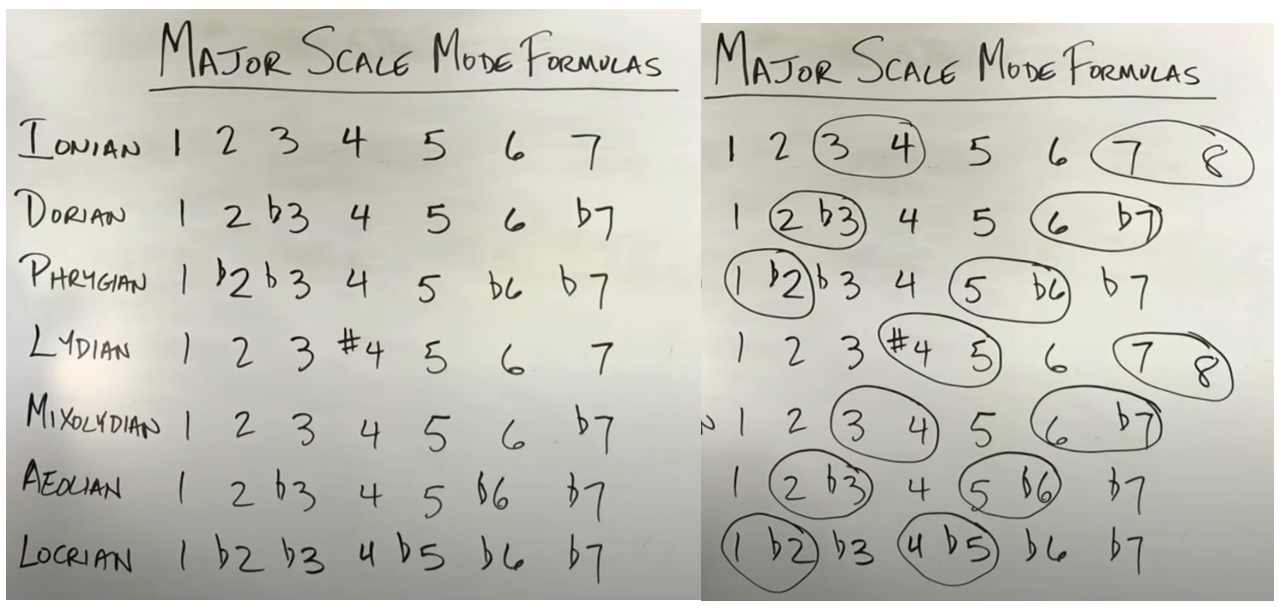 MAJOR SCALE MODE FORMULAS
IONIAN 1 2 3 4 5 6 7
DORIAN 1 2 b3 4 5 6 b7
PHRYGIAN 1 b2 b3 4 5 b6 b7
LYDIAN 1 2 3 #4 5 6 7
MIXOLYDIAN 1 2 3 4 5 6 b7
AEOLIAN 1 2 b3 4 5 b6 b7
LOCRIAN 1 b2 b3 4 b5 b6 b7
MAJOR SCALE MODE FORMULAS
1 2 3 4 5 6 7 8
1 2 b3 4 5 6 b7
1 b2 b3 4 5 b6 b7
1 2 3 #4 5 6 7 8
N 1 2 3 4 5 6 b7
1 2 b3 4 5 b6 b7
1 b2 b3 4 b5 b6 b7